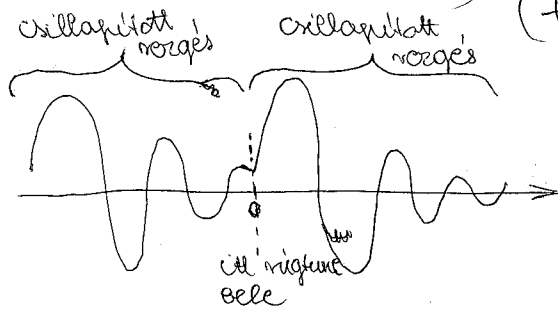 csillapított
rezgés
csillapított
rezgés
(t
0
itt rúgtunk
bele